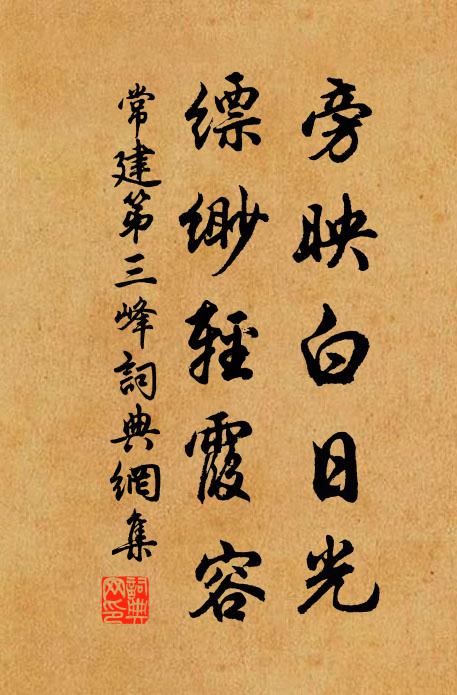 旁映白日光
縹緲輕霞容
常建第三峰詞典網集
詞典网印